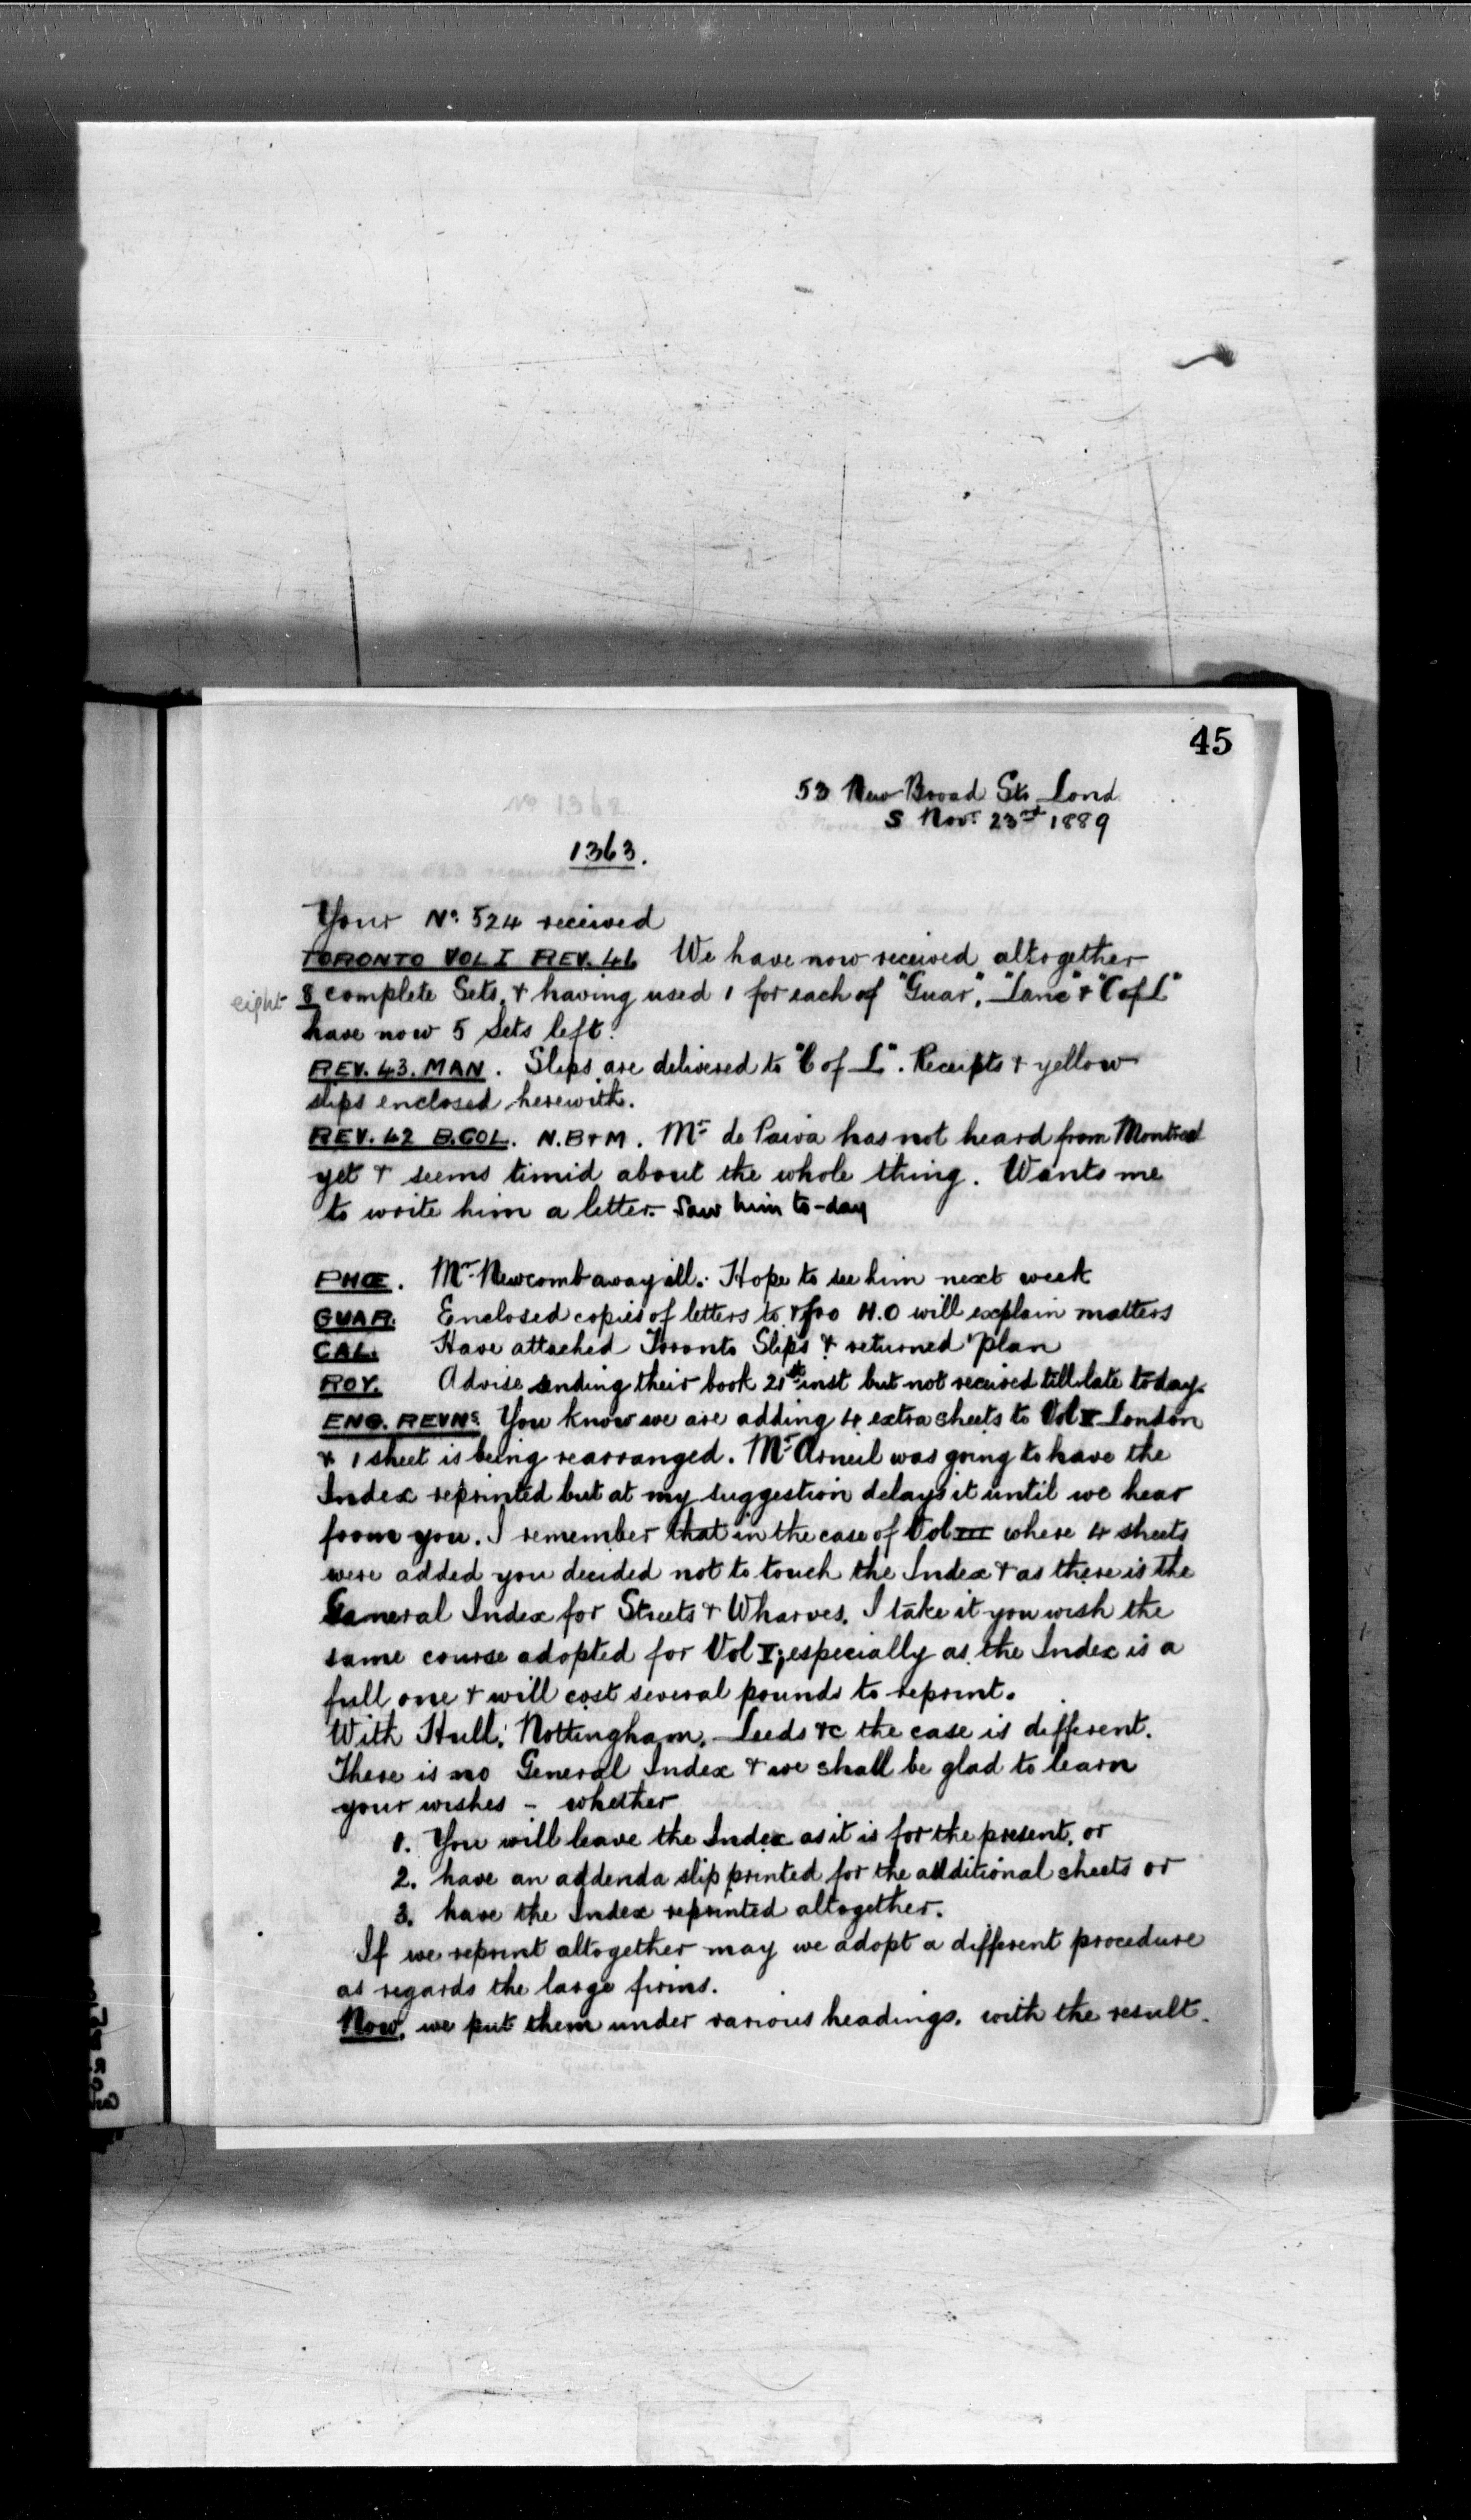 45
53 New Broad St. Lond
S Novr 23rd 1889
1363.
Your No. 524 received
TORONTO VOL I REV. 46 We have now received altogether
eight 8 complete Sets, & having used 1 for each of "Guar", "Lanc" & "C of L"
have now 5 Sets left.
REV. 43. MAN. Slips are delivered to "C of L". Receipts & yellow
slips enclosed herewith.
REV. 42 B.COL. N.B & M. Mr de Paiva has not heard from Montreal
yet & seems timid about the whole thing. Wants me
to write him a letter. Saw him to-day
PHŒ. Mr Newcomb away ill. Hope to see him next week
GUAR. Enclosed copies of letters to & fro H.O will explain matters
CAL. Have attached Toronto Slips & returned Plan
ROY. Advise sending their book 21st inst but not received till late today.
ENG. REVNS. You know we are adding 4 extra sheets to Vol V London
& 1 sheet is being rearranged. Mr Arneil was going to have the
Index reprinted but at my suggestion delays it until we hear
from you. I remember that in the case of Vol III where 4 sheets
were added you decided not to touch the Index & as there is the
General Index for Streets & Wharves, I take it you wish the
same course adopted for Vol V; especially as the Index is a
full one & will cost several pounds to reprint.
With Hull, Nottingham, Leeds &c the case is different.
There is no General Index & we shall be glad to learn
your wishes - whether
1. You will leave the Index as it is for the present, or
2. have an addenda slip printed for the additional sheets or
3. have the Index reprinted altogether.
If we reprint altogether may we adopt a different procedure
as regards the large firms.
Now, we put them under various headings, with the result